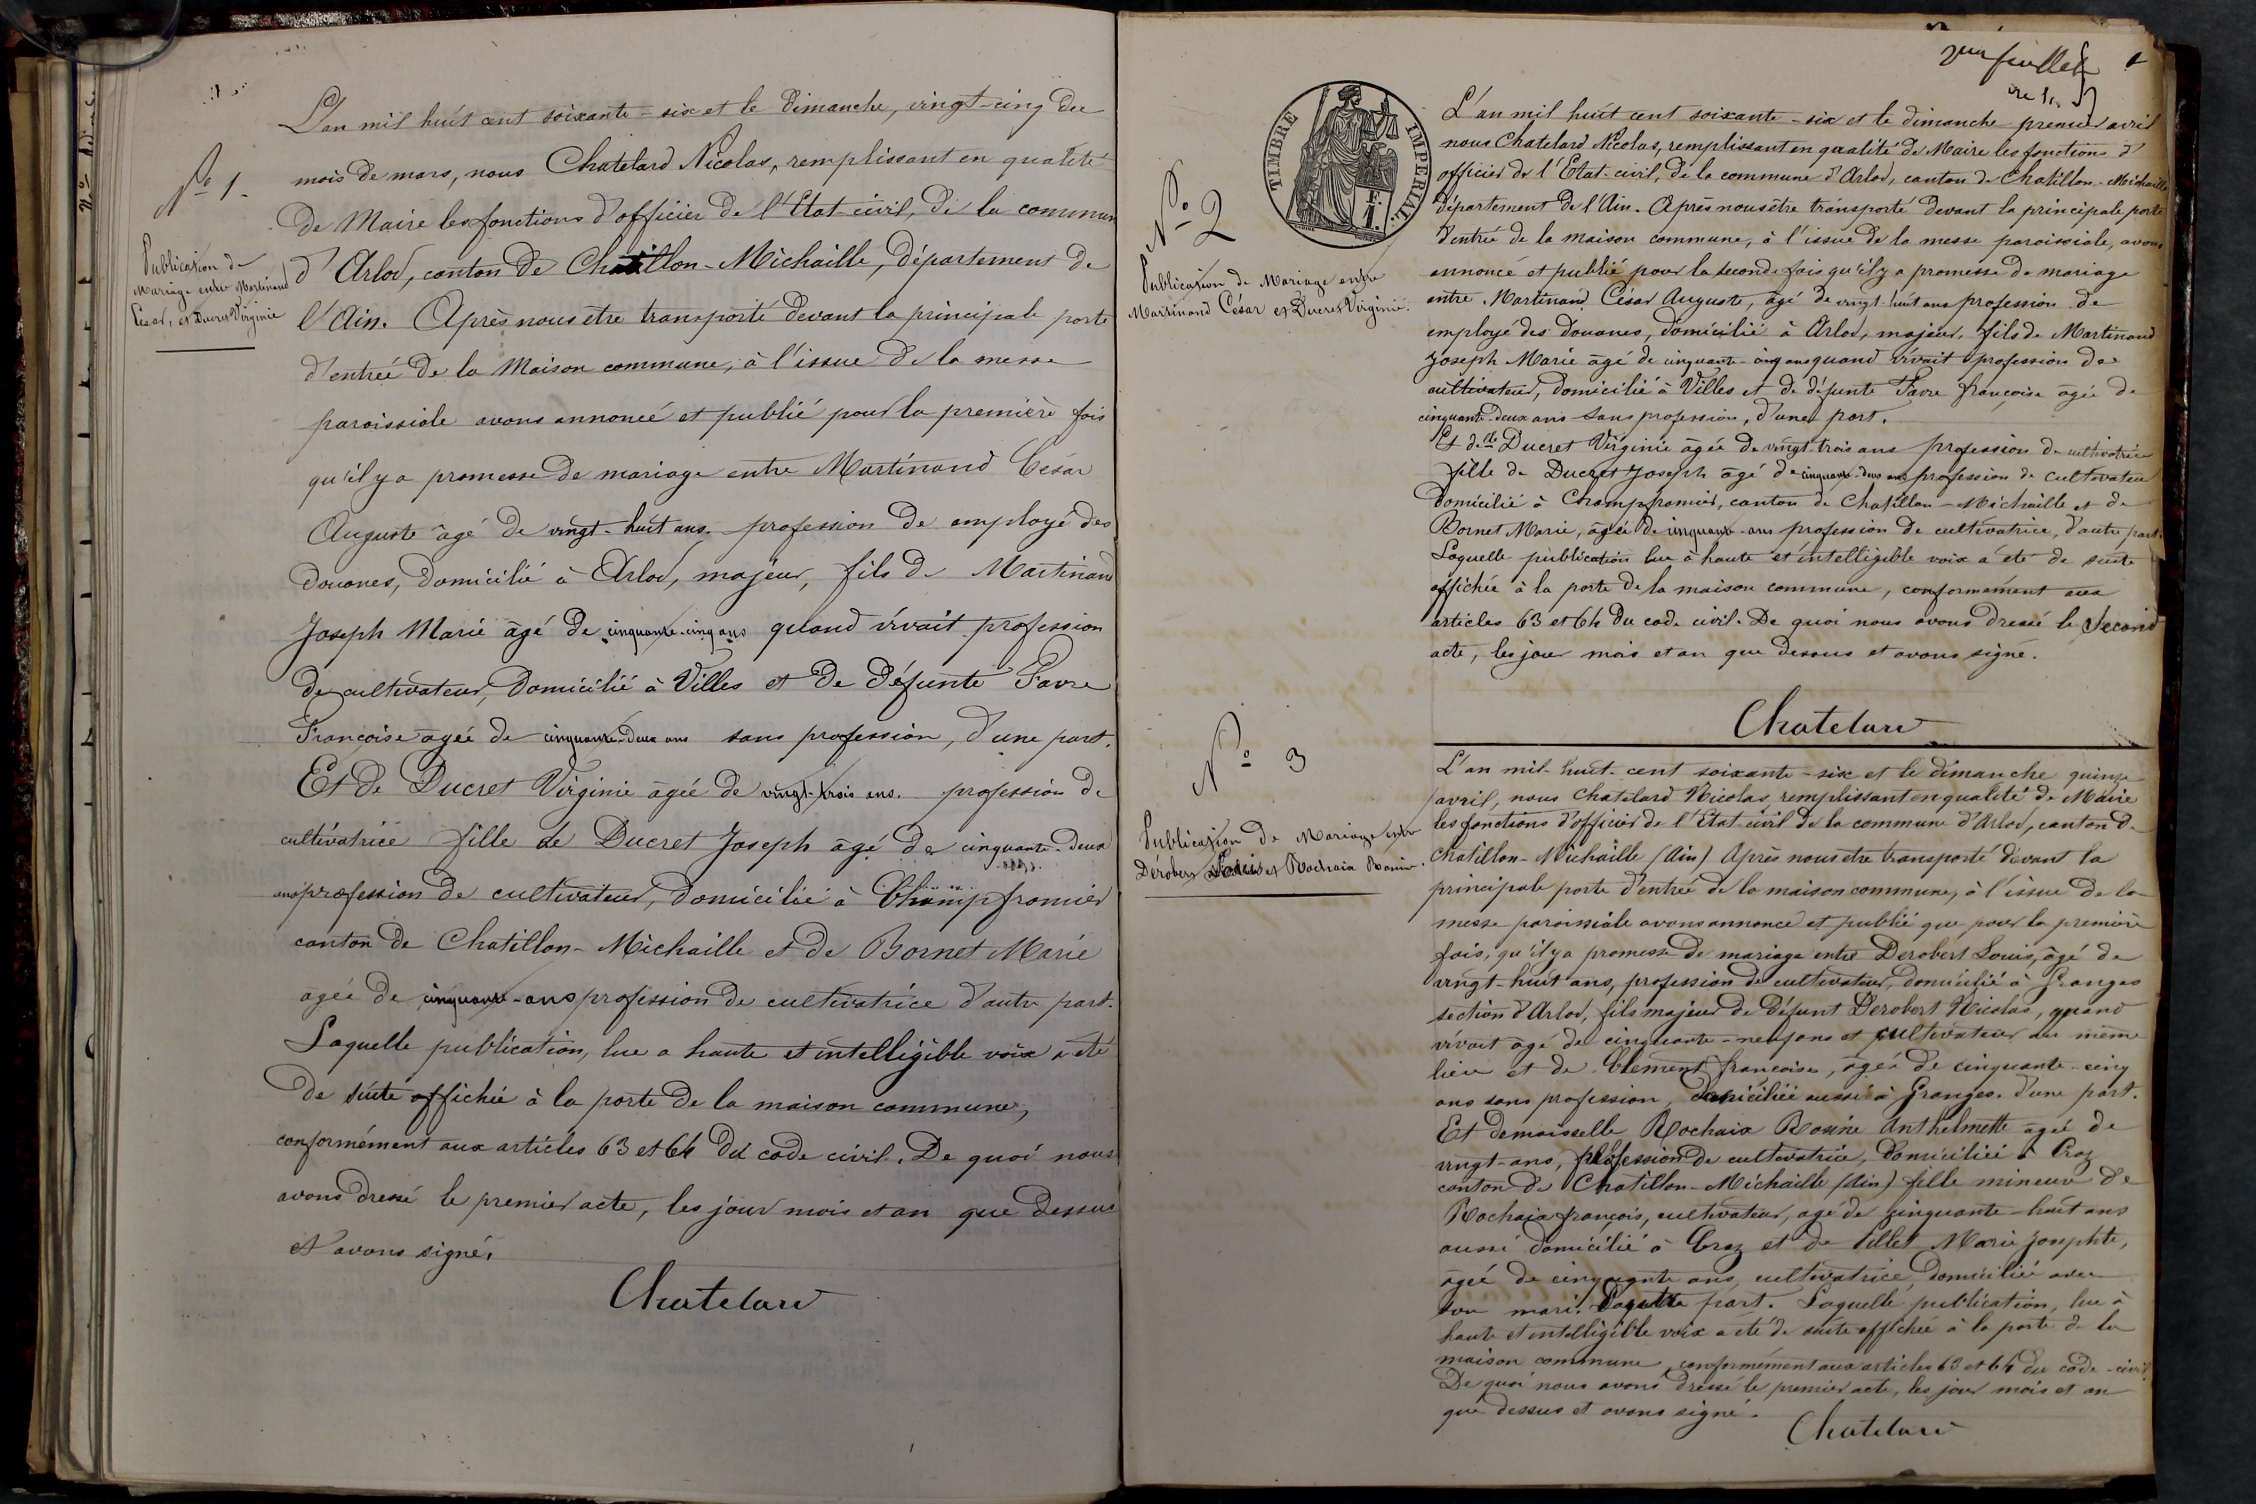 N° 1
Publication de
Mariage entre Martinand
César, et Ducret Virginie
L'an mil huit cent soixante-six et le dimanche, vingt-cinq du
mois de mars, nous Chatelard Nicolas, remplissant en qualité
de Maire les fonctions d'officier de l'Etat-civil, de la commune
d'Arlod, canton de Chatillon-Michaille, département de
l'Ain. Après nous être transporté devant la principale porte
d'entrée de la Maison commune, à l'issue de la messe
paroissiale avons annoncé et publié pour la première fois
qu'il y a promesse de mariage entre Martinand César
Auguste âgé de vingt-huit ans profession de employé des
douanes, domicilié à Arlod, majeur, fils de Martinand
Joseph Marie âgé de cinquante-cinq ans quand vivait profession
de cultivateur, domicilié à Villes et de défunte Favre
Françoise agée de cinquante-deux ans sans profession, d'une part.
Et de Ducret Virginie agée de vingt-trois ans. profession de
cultivatrice fille de Ducret Joseph âgé de cinquante-deux
ans profession de cultivateur, domicilié à Champfromier
canton de Chatillon-Michaille et de Bornet Marie
agée de cinquante-ans profession de cultivatrice d'autre part.
Laquelle publication, lue a haute et intelligible voix a été
de suite affichée à la porte de la maison commune,
conformément aux articles 63 et 64 du code civil. De quoi nous
avons dressé le premier acte, les jour mois et an que dessus
et avons signé.
Chatelard
feuillet
N° 2
TIMBRE IMPERIAL
Publication de Mariage entre
Martinand César et Ducret Virginie.
L'an mil huit cent soixante-six et le dimanche premier avril
nous Chatelard Nicolas, remplissant en qualité de Maire les fonctions d'
officier de l'Etat-civil, de la commune d'Arlod, canton de Chatillon-Michaille
département de l'Ain. Après nous être transporté devant la principale porte
d'entrée de la maison commune, à l'issue de la messe paroissiale, avons
annoncé et publié pour la seconde fois qu'il y a promesse de mariage
entre Martinand César Auguste, âgé de vingt-huit ans profession de
employé des Douanes, domicilié à Arlod, majeur, fils de Martinand
Joseph Marie âgé de cinquante-cinq ans quand vivait profession de
cultivateur, domicilié à Villes et de défunte Favre françoise agée de
cinquante-deux ans sans profession, d'une part.
Et de Dlle Ducret Virginie âgée de vingt-trois ans profession de cultivatrice
fille de Ducret Joseph âgé de cinquante-deux ans profession de cultivateur
domicilié à Champfromier, canton de Chatillon-Michaille et de
Bornet Marie, agée de cinquante-ans profession de cultivatrice, d'autre part.
Laquelle publication lue à haute et intelligible voix a été de suite
affichée à la porte de la maison commune, conformément aux
articles 63 et 64 du code civil. De quoi nous avons dressé le second
acte, les jour mois et an que dessus et avons signé.
Chatelard
N° 3
Publication de Mariage entre
Dérobert Louis et Rochaix Rosine.
L'an mil-huit-cent soixante-six et le dimanche quinze
avril, nous Chatelard Nicolas, remplissant en qualité de Maire
les fonctions d'officier de l'Etat-civil de la commune d'Arlod, canton de
Chatillon-Michaille (Ain) Après nous être transporté devant la
principale porte d'entrée de la maison commune, à l'issue de la
messe paroissiale avons annoncé et publié que pour la première
fois, qu'il y a promesse de mariage entre Derobert Louis, âgé de
vingt-huit ans, profession de cultivateur, domicilié à Granges
section d'Arlod, fils majeur de défunt Derobert Nicolas, quand
vivait âgé de cinquante-neuf ans et cultivateur au même
lieu et de Clément françoise, agée de cinquante-cinq
ans sans profession, domiciliée aussi à Granges. d'une part.
Et demoisselle Rochaix Rosine Anthelmette agée de
vingt-ans, profession de cultivatrice, domiciliée à Craz
canton de Chatillon-Michaille (Ain) fille mineure de
Rochaix françois, cultivateur, agé de cinquante-huit ans
aussi domicilié à Craz et de Pillet Marie Josephte,
agée de cinquante ans, cultivatrice, domiciliée avec
son mari. D'autre part. Laquelle publication, lue à
haute et intelligible voix a été de suite affichée à la porte de la
maison commune, conformément aux articles 63 et 64 du code-civil.
De quoi nous avons dressé le premier acte, les jour mois et an
que dessus et avons signé.
Chatelard